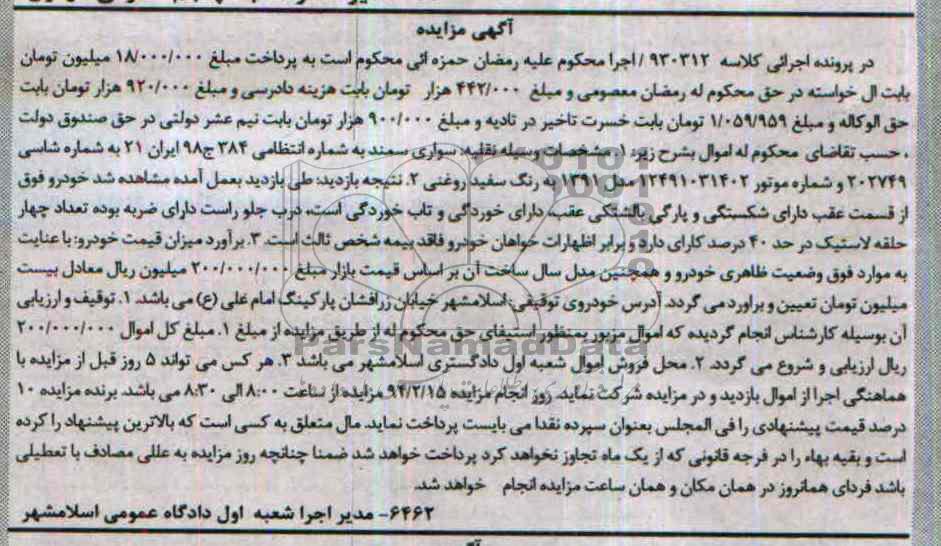 آگهی مزایده
در پرونده اجرائی کلاسه ۹۳۰۳۱۲ / اجرا محکوم علیه رمضان حمزه ائی محکوم است به پرداخت مبلغ ۱۸/۰۰۰/۰۰۰ میلیون تومان
بابت ال خواسته در حق محکوم له رمضان معصومی و مبلغ ۴۴۲/۰۰۰ هزار تومان بابت هزینه دادرسی و مبلغ ۹۲۰/۰۰۰ هزار تومان بابت
حق الوکاله و مبلغ ۱/۰۵۹/۹۵۹ تومان بابت خسرت تاخیر در تادیه و مبلغ ۹۰۰/۰۰۰ هزار تومان بابت نیم عشر دولتی در حق صندوق دولت
، حسب تقاضای محکوم له اموال بشرح زیر: ۱. مشخصات وسیله نقلیه: سواری سمند به شماره انتظامی ۳۸۴ ج۹۸ ایران ۲۱ به شماره شاسی
۲۰۲۷۴۹ و شماره موتور ۱۲۴۹۱۰۳۱۴۰۲ مدل ۱۳۹۱ به رنگ سفید روغنی ۲. نتیجه بازدید: طی بازدید بعمل آمده مشاهده شد خودرو فوق
از قسمت عقب دارای شکستگی و پارگی بالشتکی عقب، دارای خوردگی و تاب خوردگی است، درب جلو راست دارای ضربه بوده تعداد چهار
حلقه لاستیک در حد ۴۰ درصد کارای دارد و برابر اظهارات خواهان خودرو فاقد بیمه شخص ثالث است. ۳. برآورد میزان قیمت خودرو: با عنایت
به موارد فوق وضعیت ظاهری خودرو و همچنین مدل سال ساخت آن بر اساس قیمت بازار مبلغ ۲۰۰/۰۰۰/۰۰۰ میلیون ریال معادل بیست
میلیون تومان تعیین و براورد می گردد. آدرس خودروی توقیفی: اسلامشهر خیابان زرافشان پارکینگ امام علی (ع) می باشد. ۱. توقیف و ارزیابی
آن بوسیله کارشناس انجام گردیده که اموال مزبور بمنظور استیفای حق محکوم له از طریق مزایده از مبلغ ۱. مبلغ کل اموال ۲۰۰/۰۰۰/۰۰۰
ParsNamadData
ریال ارزیابی و شروع می گردد. ۲. محل فروش اموال شعبه اول دادگستری اسلامشهر می باشد ۳. هر کس می تواند ۵ روز قبل از مزایده با
هماهنگی اجرا از اموال بازدید و در مزایده شرکت نماید. روز انجام مزایده ۹۴/۲/۱۵ مزایده از ساعت ۸:۰۰ الی ۸:۳۰ می باشد. برنده مزایده ۱۰
درصد قیمت پیشنهادی را فی المجلس بعنوان سپرده نقدا می بایست پرداخت نماید. مال متعلق به کسی است که بالاترین پیشنهاد را کرده
است و بقیه بهاء را در فرجه قانونی که از یک ماه تجاوز نخواهد کرد پرداخت خواهد شد ضمنا چنانچه روز مزایده به عللی مصادف با تعطیلی
باشد فردای همانروز در همان مکان و همان ساعت مزایده انجام خواهد شد.
۶۴۶۲- مدیر اجرا شعبه اول دادگاه عمومی اسلامشهر